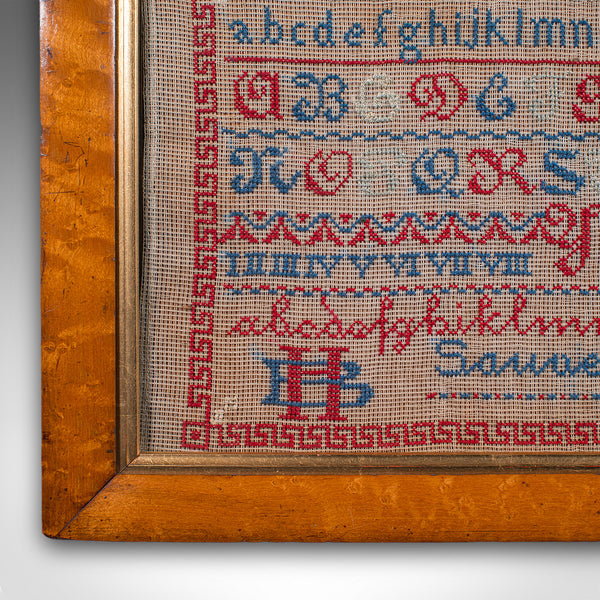 abcdefghijklmn
A B C D E
N O P Q R S
I II III IV V VI VII VIII
abcdefghiklm
HB
Souve